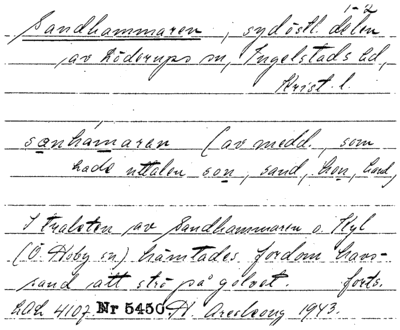 1-2
Sandhammaren, sydöstl. delen
av Löderups sn, Ingelstads hd,
Krist. l.
sanhamaren (av medd., som
hade uttalen son, sand, hon, hand,
I trakten av Sandhammaren o. Hyl
(Ö. Hoby sn) hämtades fordom havs-
sand att strö på golvet. forts.
4107 Nr 5450 H. Areskoug 1943.